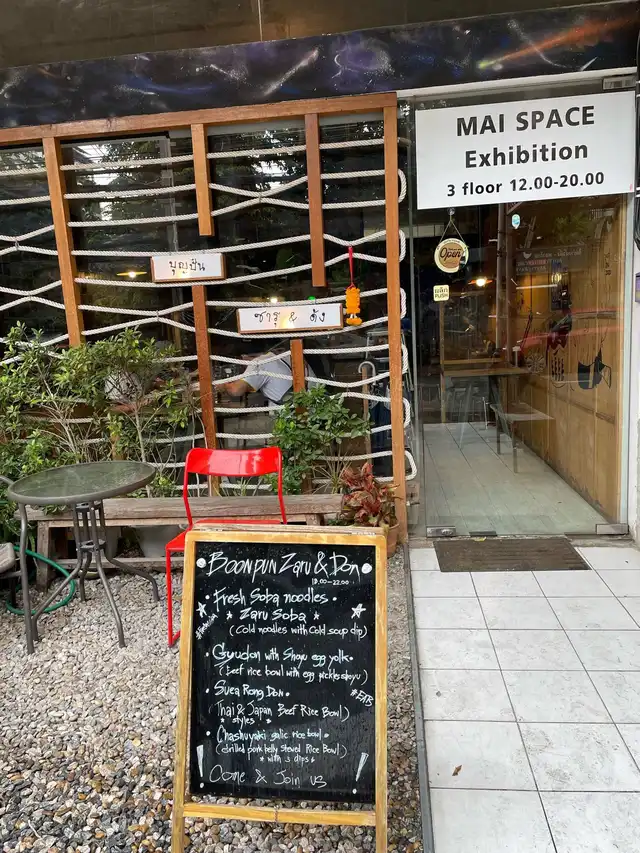 MAI SPACE
Exhibition
3 floor 12.00-20.00
Open
PUSH
บุญปัน
ซารุ & ด้ง
Boonpun Zaru & Don
• Fresh Soba noodles •
* Zaru Soba *
(Cold noodles with Cold soup dip)
• Gyudon with Shoyu egg yolk •
(Beef rice bowl with egg pickles shoyu)
• Suea Rong Don •
(Thai & Japan Beef Rice Bowl)
* styles *
• Chashuyaki galic rice bowl •
(Grilled pork belly Stewed Rice Bowl)
* with 3 dips *
Come & Join us